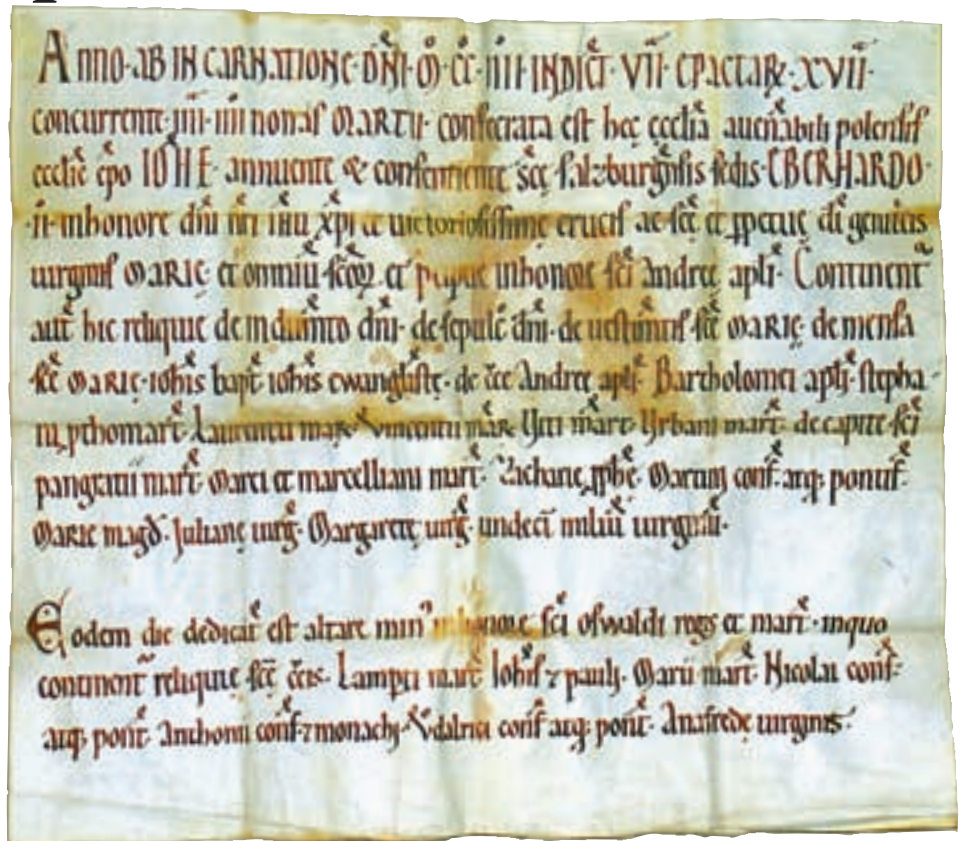 Anno ab incarnatione dn̄i m̊ cc̊ iiii indict̄ vii epactarꝝ xvii
concurrente iiii iiii nonas Martii consecrata est hec ęcclīa a uen̄abili polensis
ecclīe ep̄o IOHE annuente & consentiente sc̄ę salzburgn̄sis sedis EBERHARDO
ii in honore dn̄i nr̄i ihū xp̄i et uictoriosissimę crucis ac sc̄ę et ꝑpetuę dī genitcis
uirginis MARIĘ et omniū sc̄oꝝ et in honore sc̄i Andreę apl̄i Continent̄
aut̄ hic reliquie de dn̄i de sepulc̄ dn̄i de uestimtis sc̄ę MARIĘ de mensa
sc̄ę MARIĘ ioh̄is bapt̄ ioh̄is ewangl̄istę de Andreę apl̄i Bartholomei apl̄i stepha
ni ꝓthomart̄ Laurentii mar̄ Vincentii mar̄ Uiti mart̄ Urbani mart̄ de capite sc̄i
pangratii mart̄ Marci et marcelliani mart̄ Zacharię ꝓph̄e Martini conf̄ atq; pontif̄
MARIE magd̄ Julianę uirḡ Margaretę uirḡ undecī miliū uirginū
Eodem die dedicat̄ est altare min in honore sc̄i oswaldi regis et mart̄ in quo
continent̄ reliquię sc̄ę c̄cis Lampti mart̄ Ioh̄is ⁊ pauli Marii mart̄ Nicolai conf̄
atq; pont̄ Anthonii conf̄ ⁊ monachi Vdalrici conf̄ atq; pont̄ uirginis